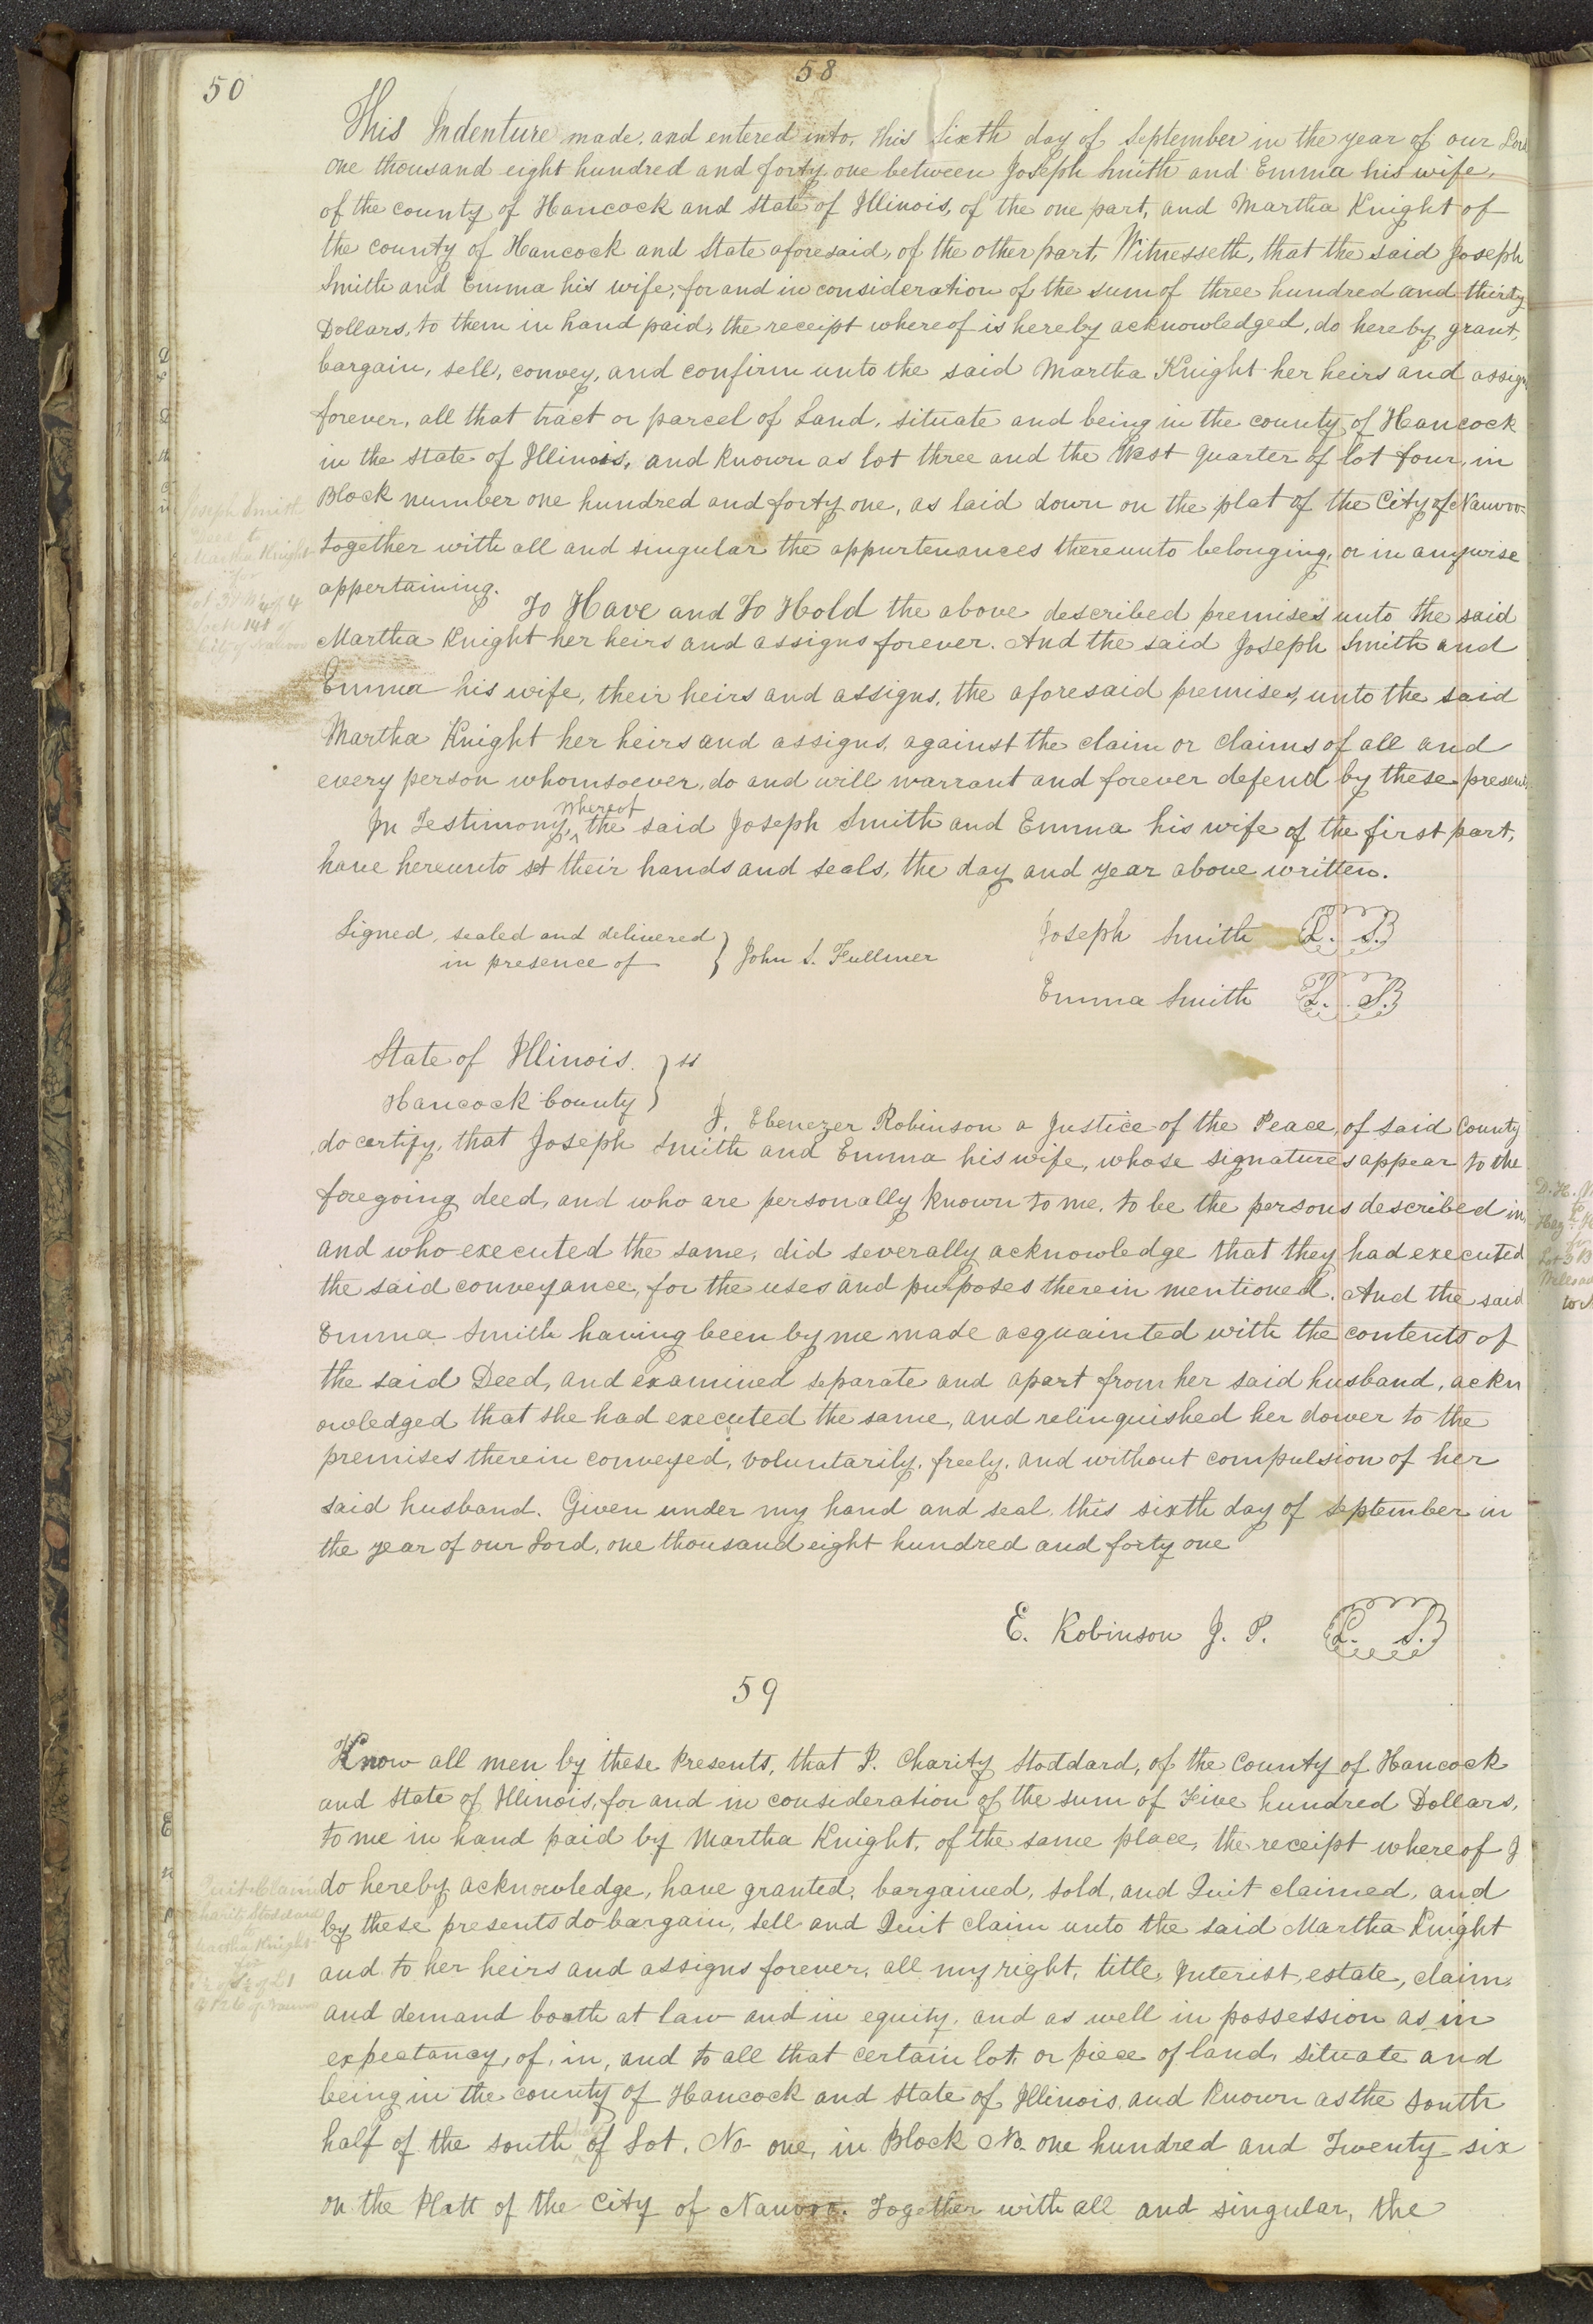 50
58
This Indenture made, and entered into, this Sixth day of September in the year of our Lord
one thousand eight hundred and forty one between Joseph Smith and Emma his wife,
of the county of Hancock and State of Illinois, of the one part, and Martha Knight of
the county of Hancock and State aforesaid, of the other part, Witnesseth, that the said Joseph
Smith and Emma his wife, for and in consideration of the sum of three hundred and thirty
Dollars, to them in hand paid, the receipt whereof is hereby acknowledged, do hereby grant,
bargain, sell, convey, and confirm unto the said Martha Knight her heirs and assigns
forever, all that tract or parcel of Land, situate and being in the county of Hancock
in the state of Illinois, and known as lot three and the West quarter of lot four, in
Block number one hundred and forty one, as laid down on the plat of the City of Nauvoo=
together with all and singular the appurtenances thereunto belonging, or in anywise
appertaining.
To Have and To Hold the above described premises unto the said
Martha Knight her heirs and assigns forever. And the said Joseph Smith and
Emma his wife, their heirs and assigns, the aforesaid premises, unto the said
Martha Knight her heirs and assigns, against the claim or claims of all and
every person whomsoever, do and will warrant and forever defend by these presents
In Testimony, whereof the said Joseph Smith and Emma his wife of the first part,
have hereunto set their hands and seals, the day and year above written.
Joseph Smith
to
Martha Knight
for
Lot 3 & W 1/4 of 4
Block 141 of
City of Nauvoo
Signed, sealed and delivered
in presence of } John S. Fullmer
Joseph Smith L. S.
Emma Smith L. S.
State of Illinois. } ss
Hancock County
I, Ebenezer Robinson a Justice of the Peace, of said County
do certify, that Joseph Smith and Emma his wife, whose signatures appear to the
foregoing deed, and who are personally known to me, to be the persons described in,
and who executed the same, did severally acknowledge that they had executed
the said conveyance, for the uses and purposes therein mentioned. And the said
Emma Smith having been by me made acquainted with the contents of
the said Deed, and examined separate and apart from her said husband, ackn
owledged that she had executed the same, and relinquished her dower to the
premises therein conveyed, voluntarily, freely, and without compulsion of her
said husband. Given under my hand and seal, this sixth day of September in
the year of our Lord, one thousand eight hundred and forty one
E. Robinson J. P. L. S.
59
Know all men by these Presents, that I. Charity Stoddard, of the County of Hancock
and State of Illinois, for and in consideration of the sum of Five hundred Dollars,
to me in hand paid by Martha Knight, of the same place, the receipt whereof I
do hereby acknowledge, have granted, bargained, sold, and Quit claimed, and
by these presents do bargain, sell and Quit claim unto the said Martha Knight
and to her heirs and assigns forever, all my right, title, Interist, estate, claim,
and demand booth at law and in equity, and as well in possession as in
expectancy, of, in, and to all that certain lot, or piece of land, situate and
being in the county of Hancock and State of Illinois, and known as the South
half of the south of Lot, No- one, in Block No. one hundred and Twenty six
on the Platt of the City of Nauvoo. Together with all and singular, the
Quit Claim
Charity Stoddard
to
Martha Knight
for